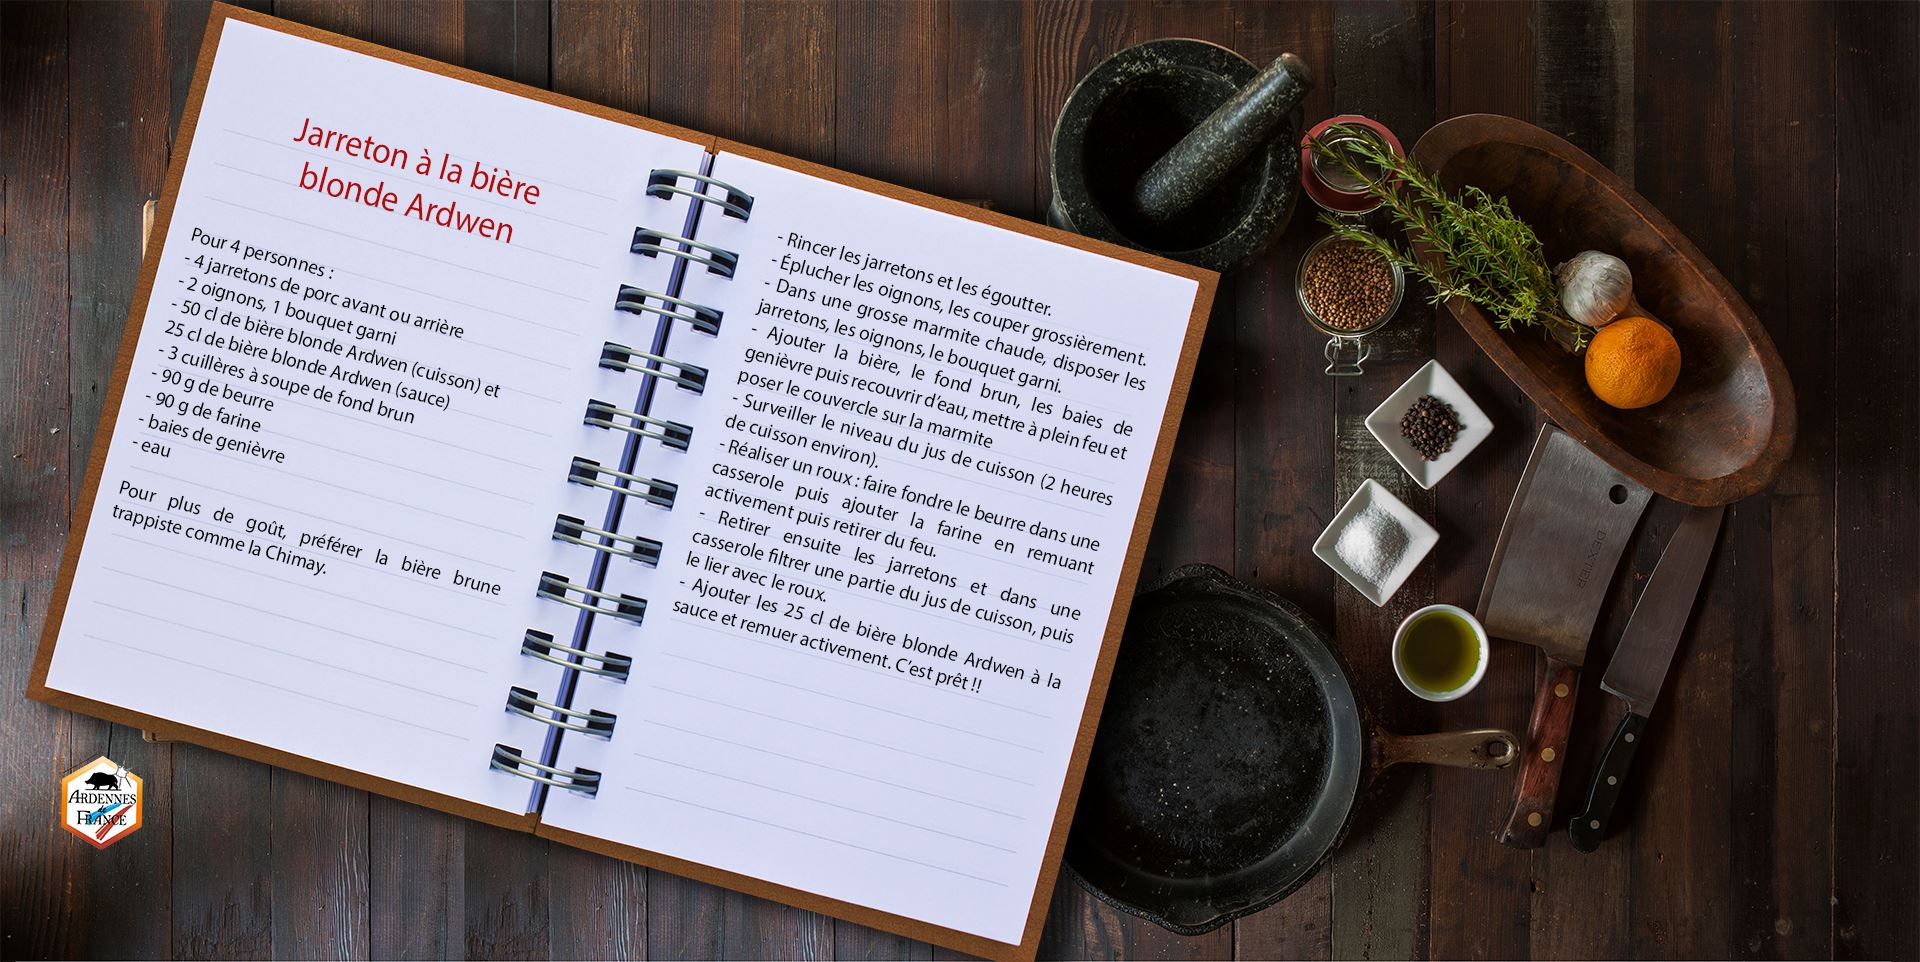 Jarreton à la bière
blonde Ardwen
Pour 4 personnes :
- 4 jarretons de porc avant ou arrière
- 2 oignons, 1 bouquet garni
- 50 cl de bière blonde Ardwen (cuisson) et
25 cl de bière blonde Ardwen (sauce)
- 3 cuillères à soupe de fond brun
- 90 g de beurre
- 90 g de farine
- baies de genièvre
- eau
Pour plus de goût, préférer la bière brune
trappiste comme la Chimay.
- Rincer les jarretons et les égoutter.
- Éplucher les oignons, les couper grossièrement.
- Dans une grosse marmite chaude, disposer les
jarretons, les oignons, le bouquet garni.
- Ajouter la bière, le fond brun, les baies de
genièvre puis recouvrir d'eau, mettre à plein feu et
poser le couvercle sur la marmite
- Surveiller le niveau du jus de cuisson (2 heures
de cuisson environ).
- Réaliser un roux : faire fondre le beurre dans une
casserole puis ajouter la farine en remuant
activement puis retirer du feu.
- Retirer ensuite les jarretons et dans une
casserole filtrer une partie du jus de cuisson, puis
le lier avec le roux.
- Ajouter les 25 cl de bière blonde Ardwen à la
sauce et remuer activement. C'est prêt !!
ARDENNES
de
FRANCE
DEXTER